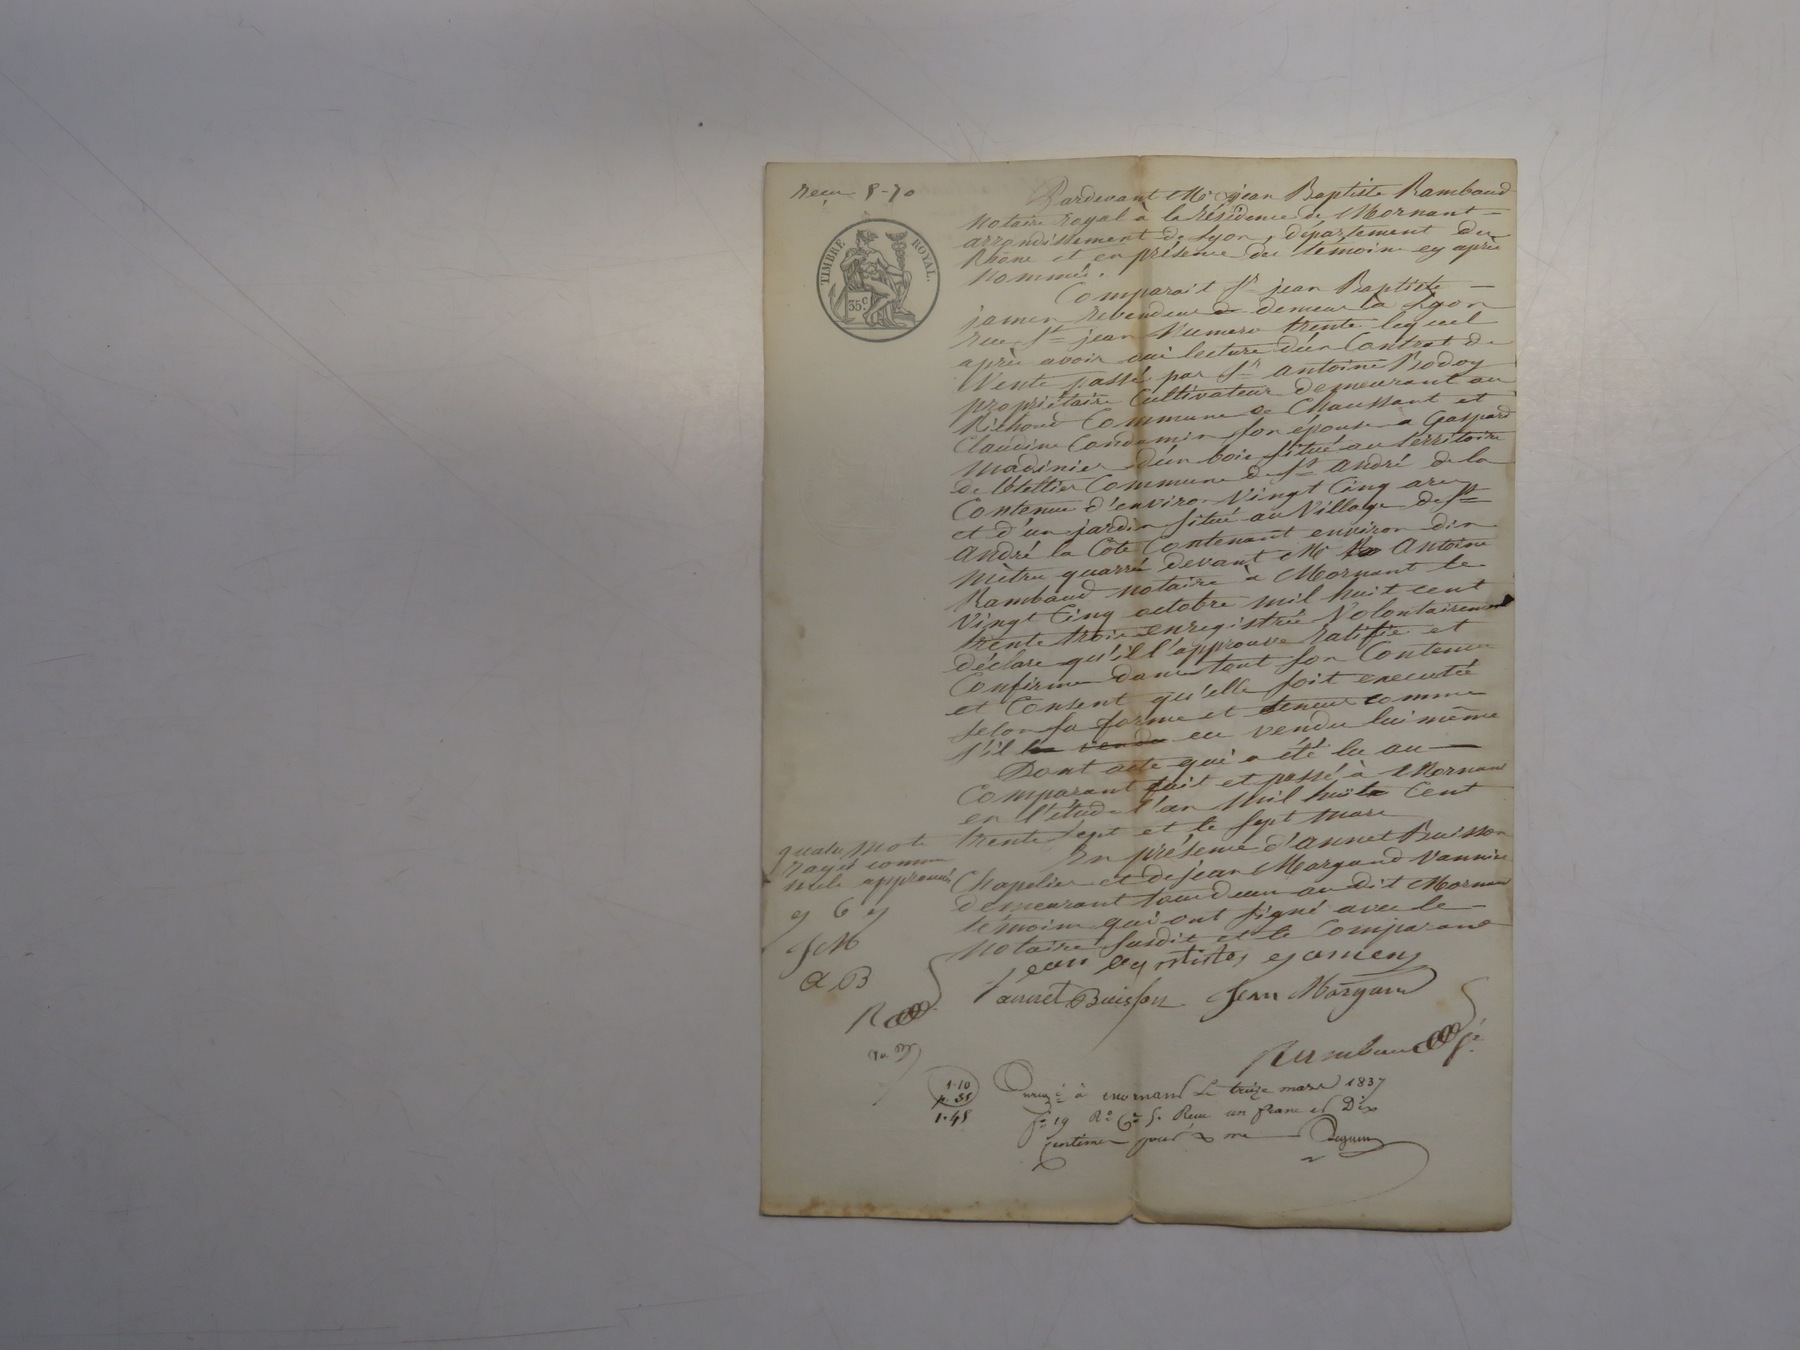 Reçu 8-70
TIMBRE ROYAL.
35 c.
Pardevant Me jean Baptiste Rambaud
Notaire royal à la résidence de Mornant
arrondissement de Lyon, département du
Rhône et en présence des témoins cy après
Nommés.
Comparait Sr jean Baptiste
jamen Revendeur demeurt à Lyon
rue St jean Numero trente lequel
après avoir oui lecture d'un Contrat de
Vente passé par Sr Antoine
propriétaire Cultivateur demeurant au
Richoud Commune de Chaussant et
Claudine Condamin son épouse à Gaspard
Madinier d'un bois situé au territoire
de Commune de St André de la
Contenue d'environ Vingt Cinq ares
et d'un jardin situé au Village de St
André la Côte Contenant environ dix
Mètres quarrés devant Me Antoine
Rambaud notaire à Mornant le
Vingt Cinq octobre mil huit cent
trente trois enregistrée Volontairement
déclare qu'il l'approuve ratifie et
Confirme dans tout son Contenu
et Consent qu'elle soit executée
selon sa forme et teneur comme
s'il la vendu eu vendu lui même
Dont acte qui a été lu au
Comparant fait et passé à Mornant
en l'étude l'an Mil huit Cent
trente sept et le sept Mars
En présence d'annet Buisson
Chapelier et de jean Morgand Vannier
demeurant tous deux au dit Mornant
témoins qui ont signé avec le
Notaire susdit et le Comparant
quatre mots
rayés comme
nuls approuvés
J M
a B
R
jean Baptiste jamen
annet Buisson Jean Morgand
Rambaud
1-10
p. 35
1-45
Enregé à Mornant le treize mars 1837
fo 19 Ro Ce 5. Reçu un franc et Dix
centimes pour Xme